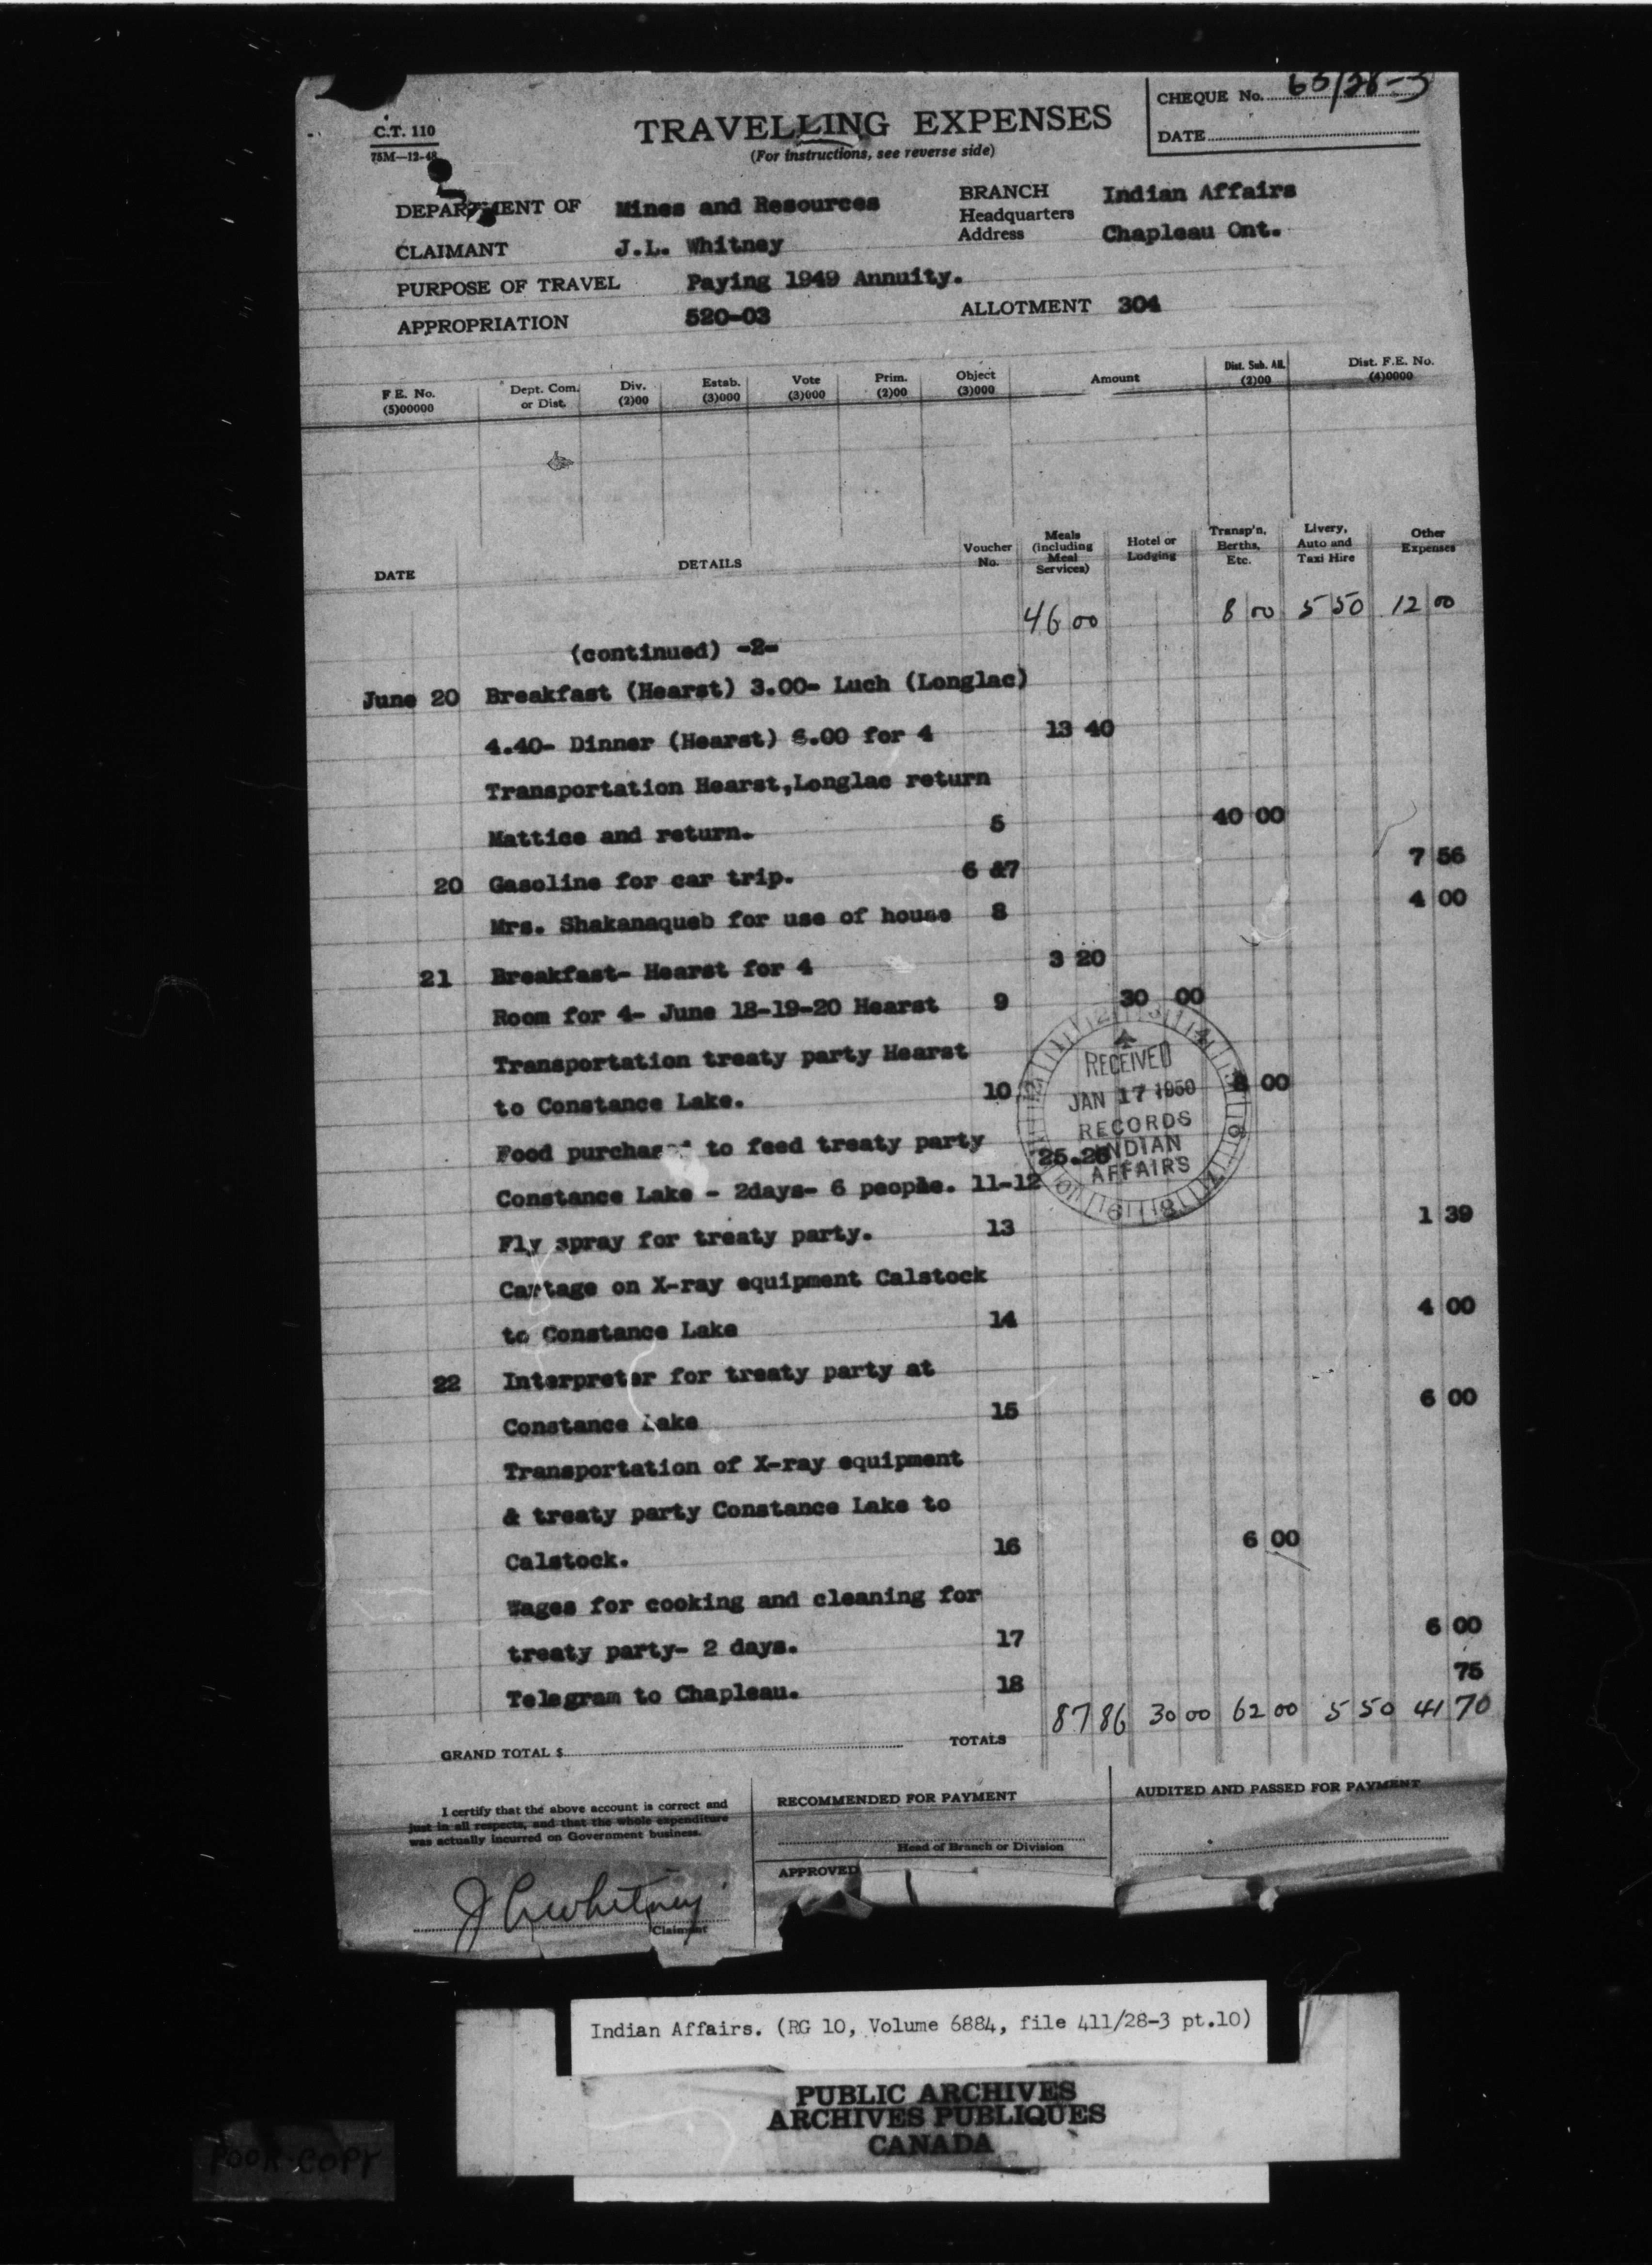 CHEQUE No. 63/28-3
C.T. 110
75M—12-48
TRAVELLING EXPENSES
(For instructions, see reverse side)
DATE
DEPARTMENT OF Mines and Resources
BRANCH Indian Affairs
Headquarters
Address Chapleau Ont.
CLAIMANT J.L. Whitney
PURPOSE OF TRAVEL Paying 1949 Annuity.
APPROPRIATION 520-03 ALLOTMENT 304
F.E. No. (5)00000 Dept. Com. or Dist. Div. (2)00 Estab. (3)000 Vote (3)000 Prim. (2)00 Object (3)000 Amount Dist. Sub. All. (2)00 Dist. F.E. No. (4)0000
DATE DETAILS Voucher No. Meals (including Meal Services) Hotel or Lodging Transp'n, Berths, Etc. Livery, Auto and Taxi Hire Other Expenses
46 00 8 00 5 50 12 00
(continued) -2-
June 20 Breakfast (Hearst) 3.00- Luch (Longlac)
4.40- Dinner (Hearst) 6.00 for 4 13 40
Transportation Hearst,Longlac return
Mattice and return. 5 40 00
20 Gasoline for car trip. 6 &7 7 56
Mrs. Shakanaqueb for use of house 8 4 00
21 Breakfast- Hearst for 4 3 20
Room for 4- June 18-19-20 Hearst 9 30 00
Transportation treaty party Hearst
to Constance Lake. 10 8 00
Food purchased to feed treaty party 25.26
Constance Lake - 2days- 6 people. 11-12
Fly spray for treaty party. 13 1 39
Cartage on X-ray equipment Calstock
to Constance Lake 14 4 00
22 Interpreter for treaty party at
Constance Lake 15 6 00
Transportation of X-ray equipment
& treaty party Constance Lake to
Calstock. 16 6 00
Wages for cooking and cleaning for
treaty party- 2 days. 17 6 00
Telegram to Chapleau. 18 75
RECEIVED
JAN 17 1950
RECORDS
INDIAN
AFFAIRS
TOTALS 87 86 30 00 62 00 5 50 41 70
GRAND TOTAL $
I certify that the above account is correct and
just in all respects, and that the whole expenditure
was actually incurred on Government business.
J L Whitney
Claimant
RECOMMENDED FOR PAYMENT
Head of Branch or Division
APPROVED
AUDITED AND PASSED FOR PAYMENT
Indian Affairs. (RG 10, Volume 6884, file 411/28-3 pt.10)
PUBLIC ARCHIVES
ARCHIVES PUBLIQUES
CANADA
POOR COPY